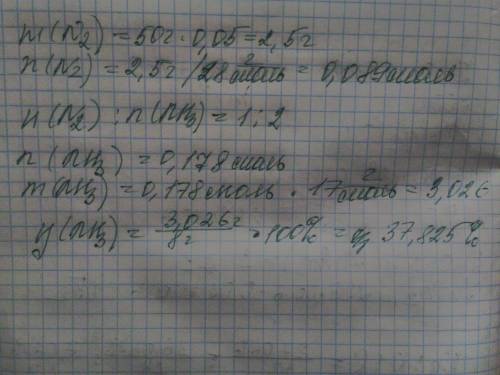 m(N₂) = 50г · 0,05 = 2,5г
n(N₂) = 2,5г / 28 г/моль = 0,089моль
n(N₂) : n(NH₃) = 1 : 2
n(NH₃) = 0,178моль
m(NH₃) = 0,178моль · 17 г/моль = 3,026
η(NH₃) = 3,026г / 8г · 100% = 37,825%